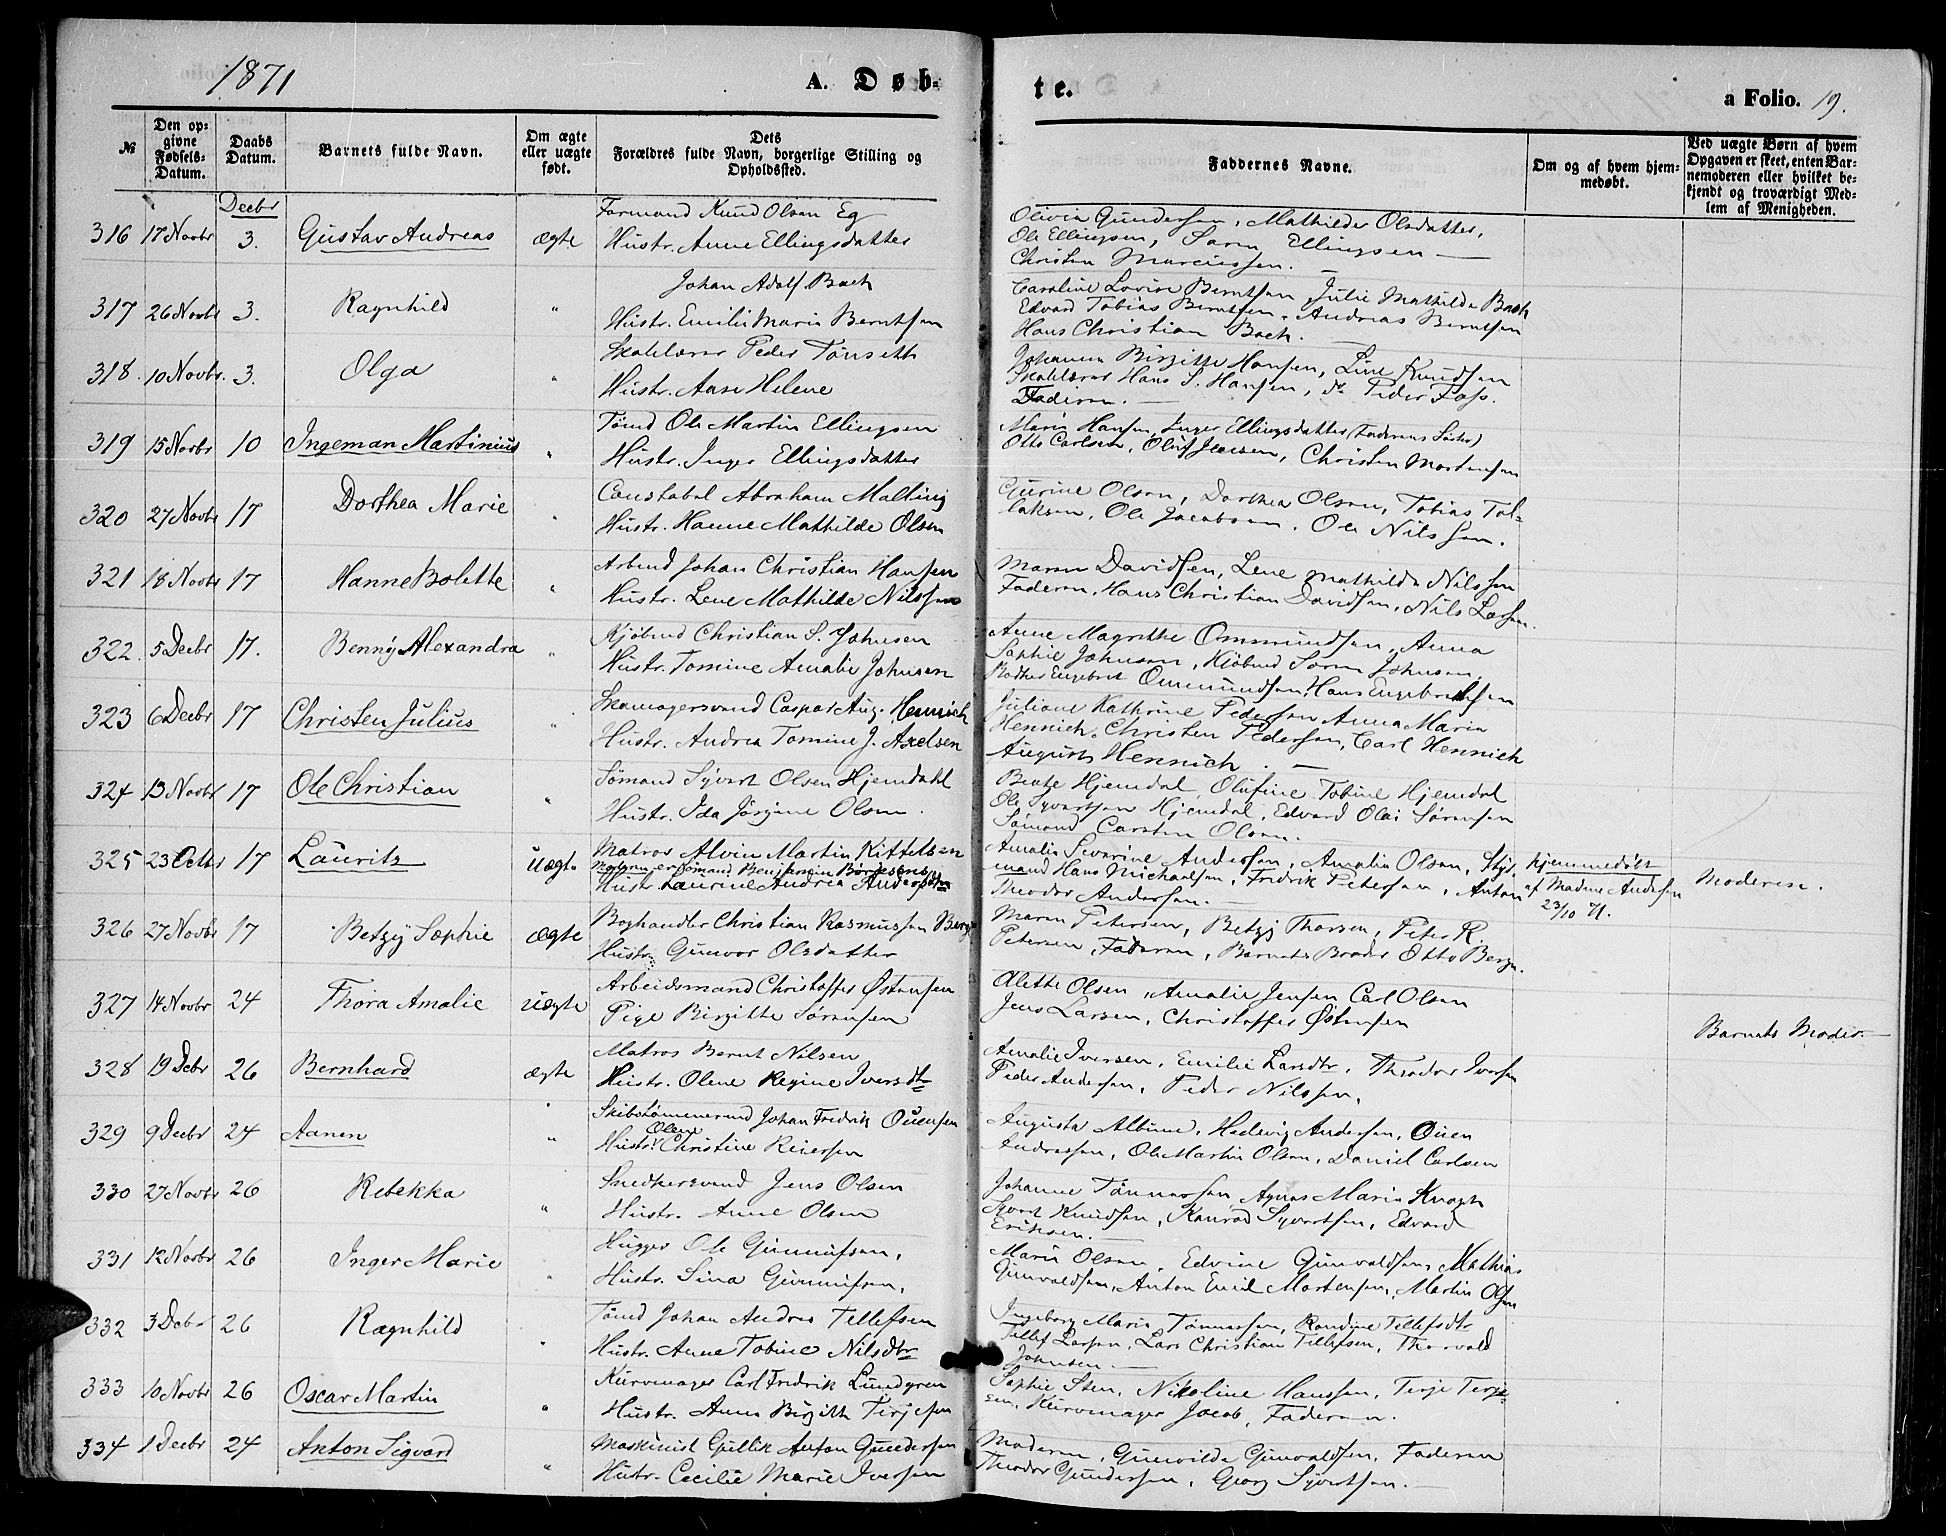 1871
A. Døb-
te.
a Folio. 19.
№
Den op-
givne
Fødsels-
Datum.
Daabs
Datum.
Barnets fulde Navn.
Om ægte
eller uægte
født.
Dets
Forældres fulde Navn, borgerlige Stilling og
Opholdssted.
Faddernes Navne.
Om og af hvem hjem-
medøbt.
Ved uægte Børn af hvem
Opgaven er skeet, enten Bar-
nemoderen eller hvilket be-
kjendt og troværdigt Med-
lem af Menigheden.
Decbr
316 17 Novbr 3. Gustav Andreas ægte
Formand Knud Olsen Eg
Hustr. Anne Ellingsdatter
Olivia Gundersen, Mathilde Olsdatter,
Ole Ellingsen, Søren Ellingsen
Christen Marcussen.
317 26 Novbr 3. Ragnhild "
Johan Adolf Bach
Hustr. Emilie Marie Berntsen
Caroline Lovise Berntsen, Julie Mathilde Bach
Edvard Tobias Berntsen, Andreas Berntsen
Hans Christian Bach.
318. 10 Novbr. 3. Olga "
Skolelærer Peder Tønseth
Hustr. Aase Helene
Johanna Birgitte Hansen, Line Knudsen
Skolelærer Hans S. Hansen, do Peder Foss.
Faderen.
319 15 Novbr 10 Ingeman Martinius "
Tømd Ole Martin Ellingsen
Hustr. Inger Ellingsdatter
Maria Hansen, Inger Ellingsdatter (Faderens Søster)
Otto Carlsen, Oluf Jensen, Christen Mortensen
320 27 Novbr 17 Dorthea Marie "
Constabel Abraham Malting
Hustr. Hanne Mathilde Olsen
Gurine Olsen, Dorthea Olsen, Tobias Tol-
laksen, Ole Jacobsen, Ole Nilssen.
321 18 Novbr 17 Hanne Bolette "
Arbmd Johan Christian Hansen
Hustr. Lene Mathilde Nilssen
Maren Davidsen, Lene Mathilde Nilssen
Faderen, Hans Christian Davidsen, Nils Larsen.
322. 5 Decbr 17. Benny Alexandra "
Kjøbmd Christian S. Johnsen
Hustr. Tomine Amalie Johnsen
Anne Magrethe Ommundsen, Anna
Sophie Johnsen, Kjøbmd Søren Johnsen,
Engebret Ommundsen, Hans Engebretsen
323 6 Decbr 17 Christen Julius "
Skomagersvend Caspar Aug. Hennich
Hustr. Andrea Tomine J. Axelsen
Juliane Kathrine Pedersen, Anna Maria
Hennich, Christen Pedersen, Carl Hennich
August Hennich.
324 13 Novbr 17 Ole Christian "
Sømand Syvert Olsen Hjemdahl
Hustr. Ida Jørgine Olsen.
Beate Hjemdal, Olufine Tobine Hjemdal
Ole Syvertsen Hjemdal, Edvard Olai Sørensen
Sømand Carsten Olsen.
325 23 Octbr 17 Lauritz uægte
Matros Alvin Martin Kittelsen
Moderen er Sømand Benjamin Børjesens
Hustr. Laurine Andrea Andersdtr
Amalie Severine Andersen, Amalie Olsen, Styr-
mand Hans Michaelsen, Fredrik Petersen, Anton
Theodor Andersen.
hjemmedøbt
af Madme Andersen
23/10 71.
Moderen.
326 27 Novbr 17 Betzy Sophie ægte
Boghandler Christian Rasmussen Berge
Hustr. Gunvor Olsdatter
Maren Petersen, Betzy Thorsen, Peter R.
Petersen, Faderen, Barnets Broder Otto Berge.
327 14 Novbr 24 Thora Amalie uægte
Arbeidsmand Christoffer Østensen
Pige Birgitte Sørensen
Alette Olsen, Amalie Jensen, Carl Olsen
Jens Larsen, Christoffer Østensen
Barnets Moder
328 19 Debr 26 Bernhard ægte
Matros Bernt Nilsen
Hustr. Olene Regine Iversdtr
Amalie Iversen, Emilie Larsdtr, Theodor Iversen
Peder Andersen, Peder Nilssen,
329 9 Decbr 24 Aanen "
Skibstømmermd Johan Fredrik Ouensen
Olene
Hustr. Christine Reiersen
Augusta Albine, Hedevig Andersen, Ouen
Andersen, Ole Martin Olsen, Daniel Carlsen
330 27 Novbr 26 Rebekka "
Snedkersvend Jens Olsen
Hustr. Anne Olsen
Johanne Tønnessen, Agnes Maria Knoph
Syvert Knudsen, Konrad Syvertsen, Edvard
Eriksen.
331 12 Novbr 26 Inger Marie "
Hugger Ole Gunnufsen,
Hustr. Sina Gunnufsen,
Maria Olsen, Edvine Gunvaldsen, Mathias
Gunvaldsen, Anton Emil Mortensen, Martin Olsen
332 3 Debr 26 Ragnhild "
Tømd Johan Andreas Tellefsen
Hustr. Anne Tobine Nilsdtr
Ingeborg Maria Tønnessen, Randine Tellefsdtr
Tellef Larsen, Lars Christian Tellefsen, Thorvald
Johnsen.
333 10 Novbr 26 Oscar Martin "
Kurvmager Carl Fredrik Lundgren
Hustr. Anne Birgith Terjesen
Sophie Sten, Nikoline Hanssen, Terje Terje-
sen, Kurvmager Jacob, Faderen.
334 1 Decbr 24 Anton Sigvard "
Maskinist Gullik Anton Gundersen
Hustr. Cecilie Marie Iversen
Moderen, Gunvilde Gunvaldsen, Faderen
Theodor Gundersen, Georg Syvertsen.